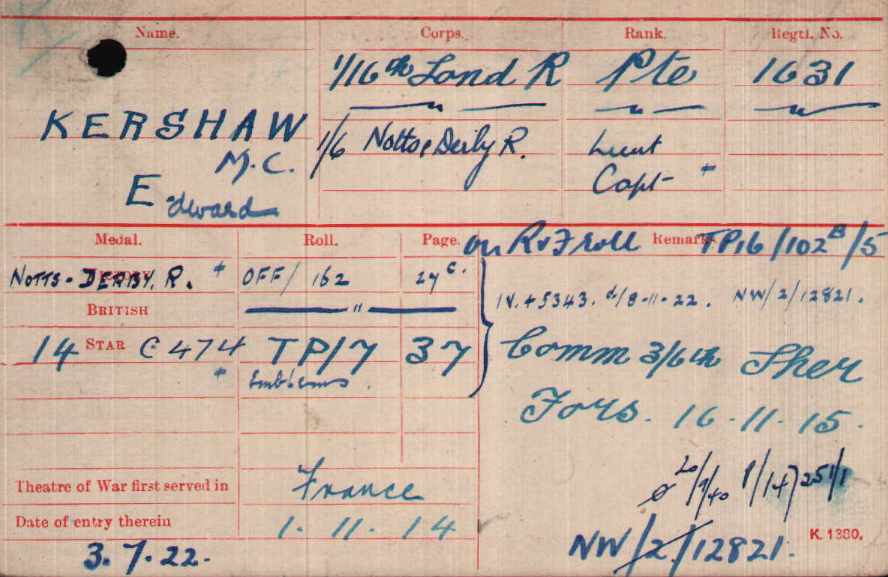 Name. Corps. Rank. Regtl. No.
KERSHAW 1/16th Lond R Pte 1631
M.C. 1/6 Notts & Derby R. Lieut
Edward Capt +
Medal. Roll. Page. on R v F roll Remarks TP16/102B/5
NOTTS - DERBY. R. + OFF/162 27 c. IV. + 5343. d/8-11-22. NW/2/12821.
BRITISH — " —
14 STAR C 474 TP17 37 Comm 3/6th Sher
+ Emblems. Fors. 16.11.15.
Theatre of War first served in France
Date of entry therein 1.11.14
3.7.22. NW/2/12821.
K. 1380.